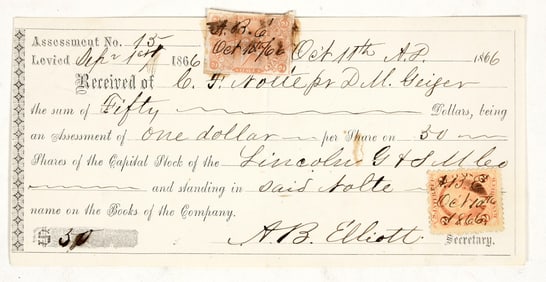 Assessment No. 15
Levied Sepr 1st 1866
A. B. E.
Oct 10th/66
Oct 11th A.D. 1866
Received of C. F. Nolte pr D. M. Geiger
the sum of Fifty Dollars, being
an Assessment of One dollar per Share on 50
Shares of the Capital Stock of the Lincoln G & S M Co
and standing in said Nolte
name on the Books of the Company.
$50
A. B. Elliott Secretary.
Oct 10th
1866